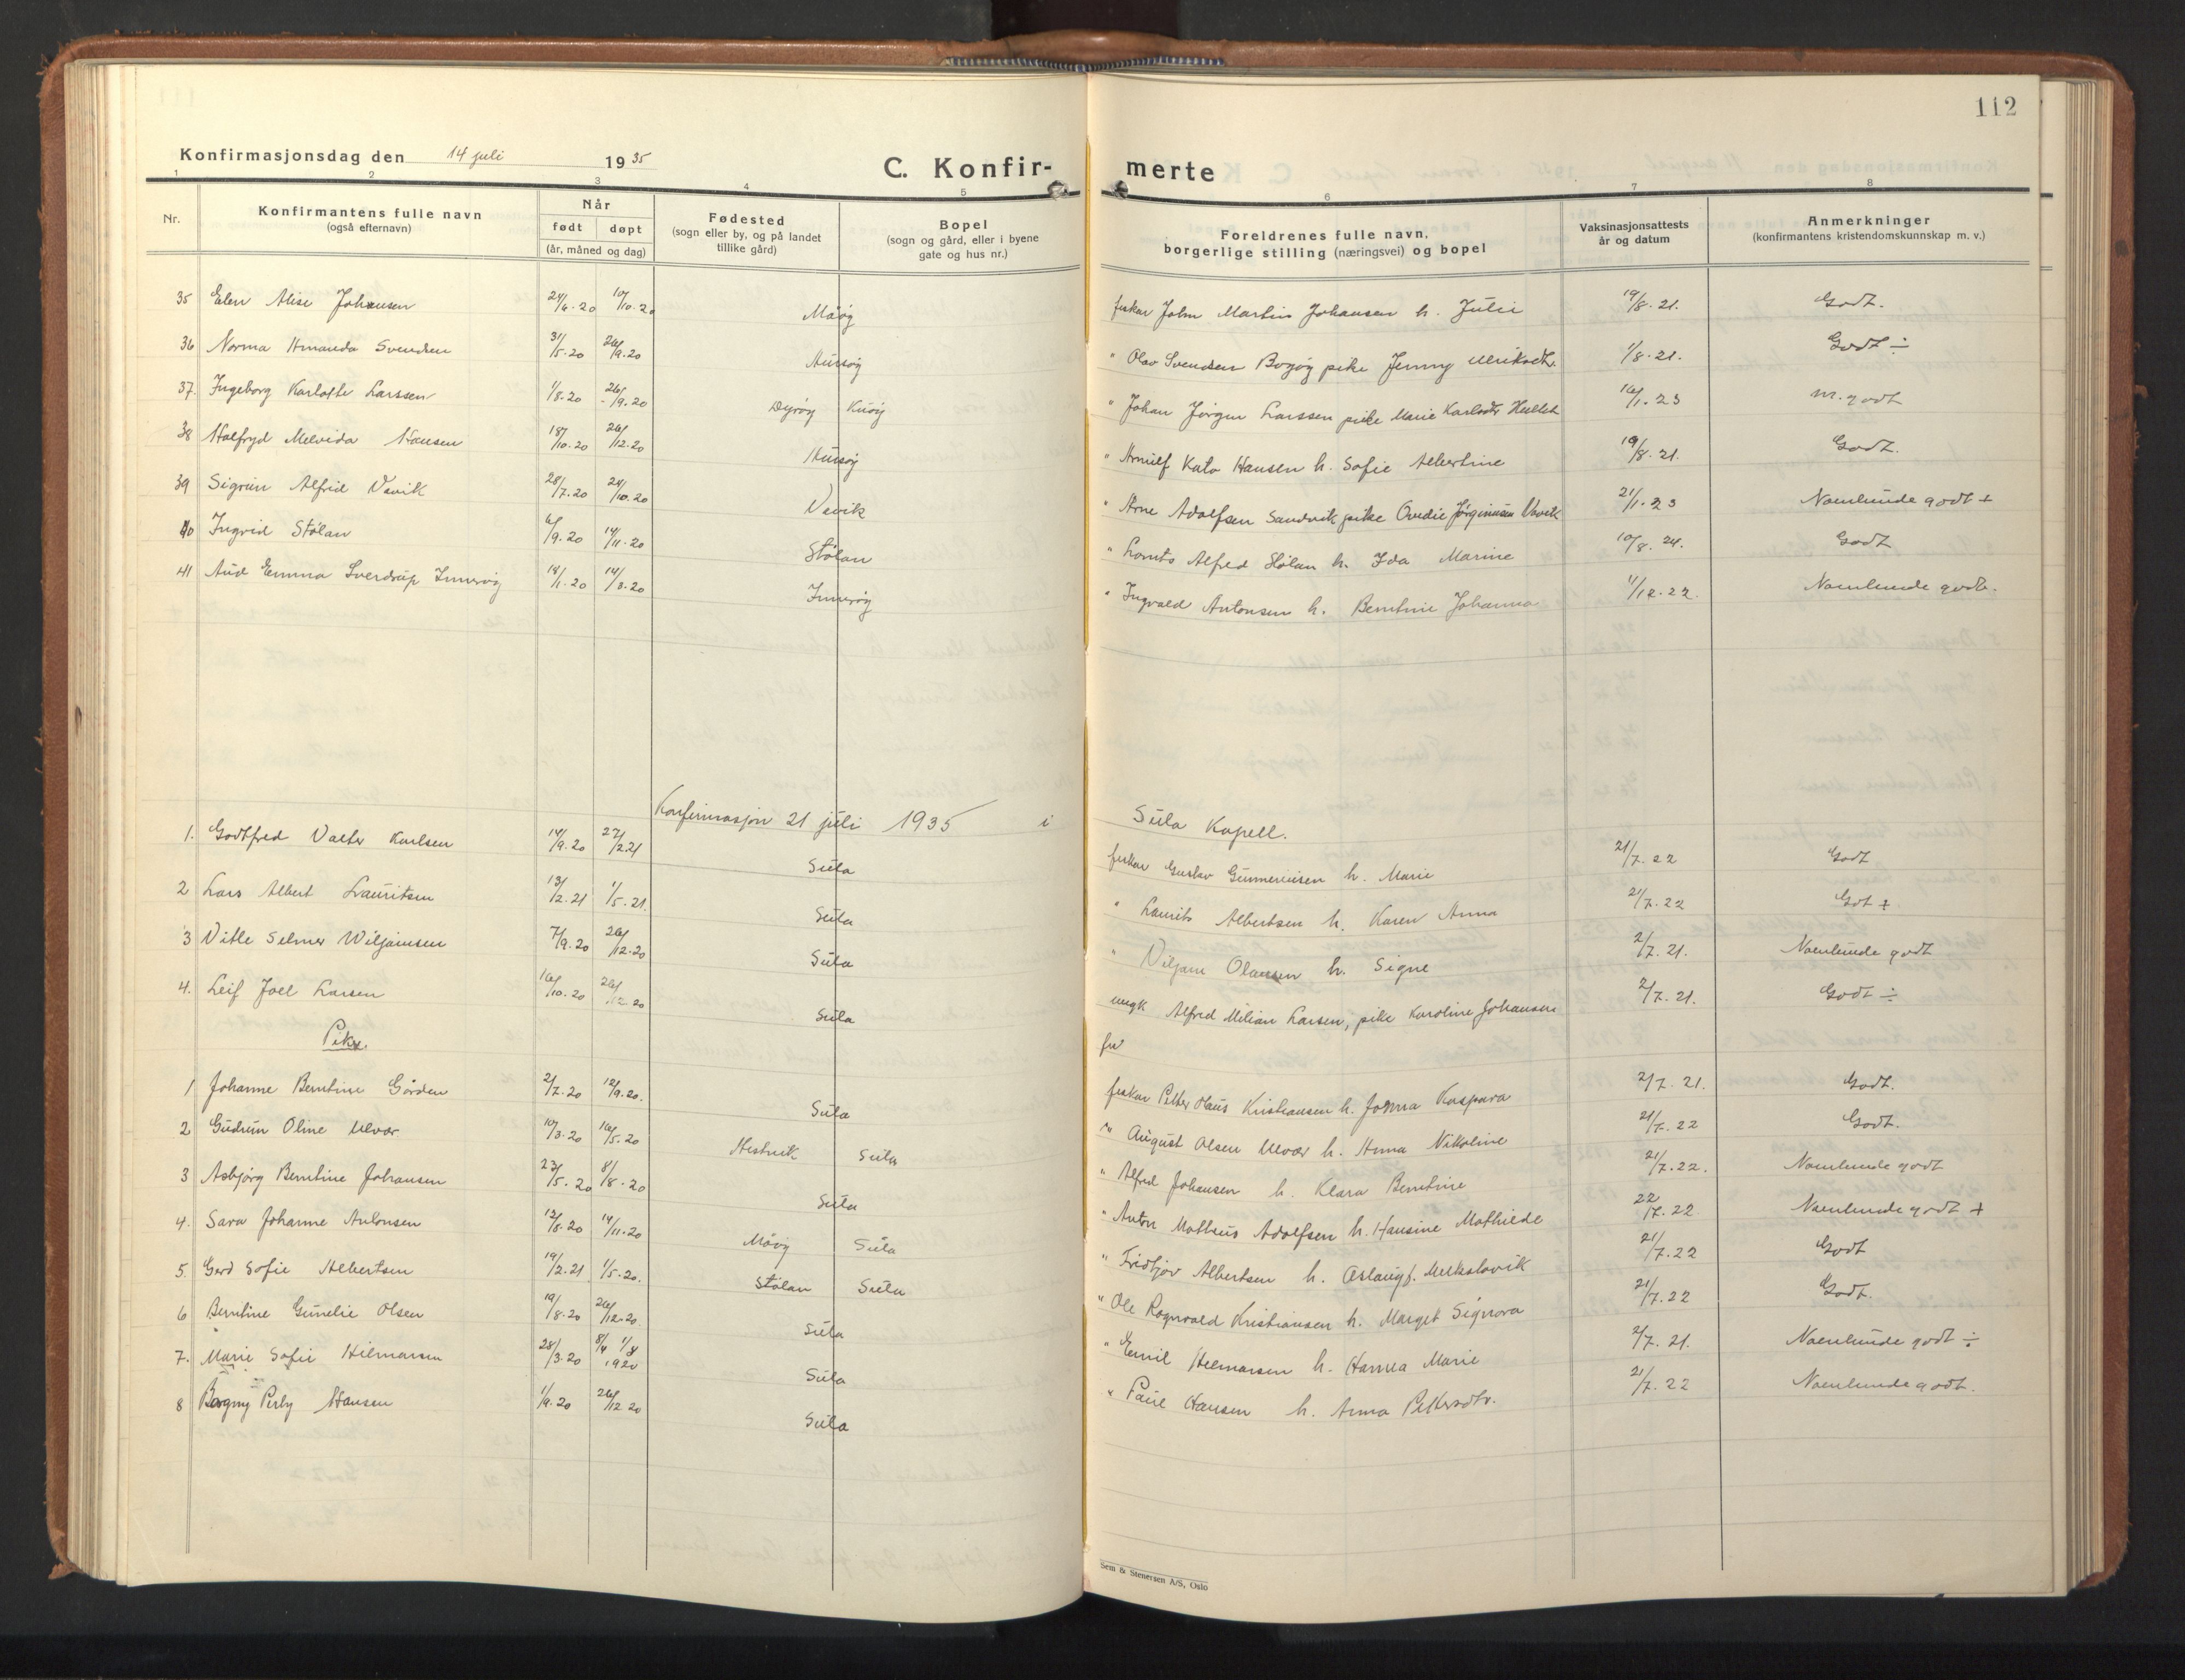 112
Konfirmasjonsdag den 14 juli 1935
C. Konfir- merte
1 2 3 4 5 6 7 8
Nr. Konfirmantens fulle navn (også efternavn) Når født døpt (år, måned og dag) Fødested (sogn eller by, og på landet tillike gård) Bopel (sogn og gård, eller i byene gate og hus nr.) Foreldrenes fulle navn, borgerlige stilling (næringsvei) og bopel Vaksinasjonsattests år og datum Anmerkninger (konfirmantens kristendomskunnskap m. v.)
35 Elen Alise Johansen 24/6.20 10/10.20 Måøy fisker John Martin Johansen h. Julie 19/8.21. Godt.
36 Norma Amanda Svendsen 31/5.20 26/9.20 Husøy " Olav Svendsen Bogøy pike Jenny Ulriksdtr. 1/8.21. Godt ÷
37. Ingeborg Karlotte Larssen 1/8.20 26/9.20 Dyrøy Kuøy " Johan Jørgen Larssen pike Marie Karlsdtr 16/1.23 m. godt
38 Halfryd Melvida Hansen 18/10.20 26/12.20 Husøy " Arnulf Kato Hansen h. Sofie Albertine 19/8.21. Godt.
39 Sigrun Alfrid Vavik 28/7.20 24/10.20 Vavik " Arne Adolfsen Sandvik pike Ovedie Jørginusen Vavik 21/1.23 Noenlunde godt +
40 Ingrid Stølan 6/9.20 14/11.20 Stølan " Lorents Alfred Stølan h. Ida Marine 10/8.24. Godt
41 Aud Emma Sverdrup Innerøy 14/1.20 14/3.20 Innerøy " Ingvald Antonsen h. Berntine Johanna 1/12.22. Noenlunde godt.
Konfirmasjon 21 juli 1935 i Sula Kapell.
1. Godtfred Valter Karlsen 14/9.20 27/2.21 Sula fisker Gustav Gunneriusen h. Marie 21/7.22 Godt
2 Lars Albert Lauritsen 13/2.21 1/5.21. Sula " Laurits Albertsen h. Karen Anna 21/7.22 Got +
3 Vitle Selmer Wiljamsen 7/9.20 26/12.20 Sula " Viljam Olausen h. Signe 2/7.21. Noenlunde godt
4. Leif Joel Larsen 16/10.20 26/12.20 Sula ungk Alfred Milian Larsen, pike Karoline Johansen 2/7.21. Godt ÷
Piker.
1 Johanne Berntine Gården 2/7.20 12/9.20. Sula fisker Petter Hans Kristiansen h. Joana Kaspara 2/7.21. Godt.
2 Gudrun Oline Ulvær 10/3.20 16/5.20 Hestvik Sula " August Olsen Ulvær h. Anna Nikoline 21/7.22 Godt.
3 Asbjørg Berntine Johansen 23/5.20 8/8.20 Sula " Alfred Johansen h. Klara Berntine 21/7.22. Noenlunde godt
4. Sara Johanne Antonsen 12/8.20 14/11.20 Måøy Sula " Anton Matheus Adolfsen h. Hansine Mathilde 22/7.22 Noenlunde godt +
5. Gerd Sofie Albertsen 19/2.21 1/5.20. Stølan Sula " Fridtjov Albertsen h. Aslaug f. Merkslavik 21/7.22 Godt
6 Berntine Gunelie Olsen 19/8.20 26/12.20. Sula " Ole Rognvald Kristiansen h. Marget Signora 21/7.22 Godt.
7. Marie Sofie Hilmarsen 28/3.20 8/4 1/8 1920 Sula " Emil Hilmarsen h. Hanna Marie 2/7.21. Noenlunde godt ÷
8 Bogny Perly Hansen 1/9.20 26/12 20 Sula " Paul Hansen h. Anna Pettersdtr. 21/7.22 Noenlunde godt.
Sem & Stenersen A/S, Oslo